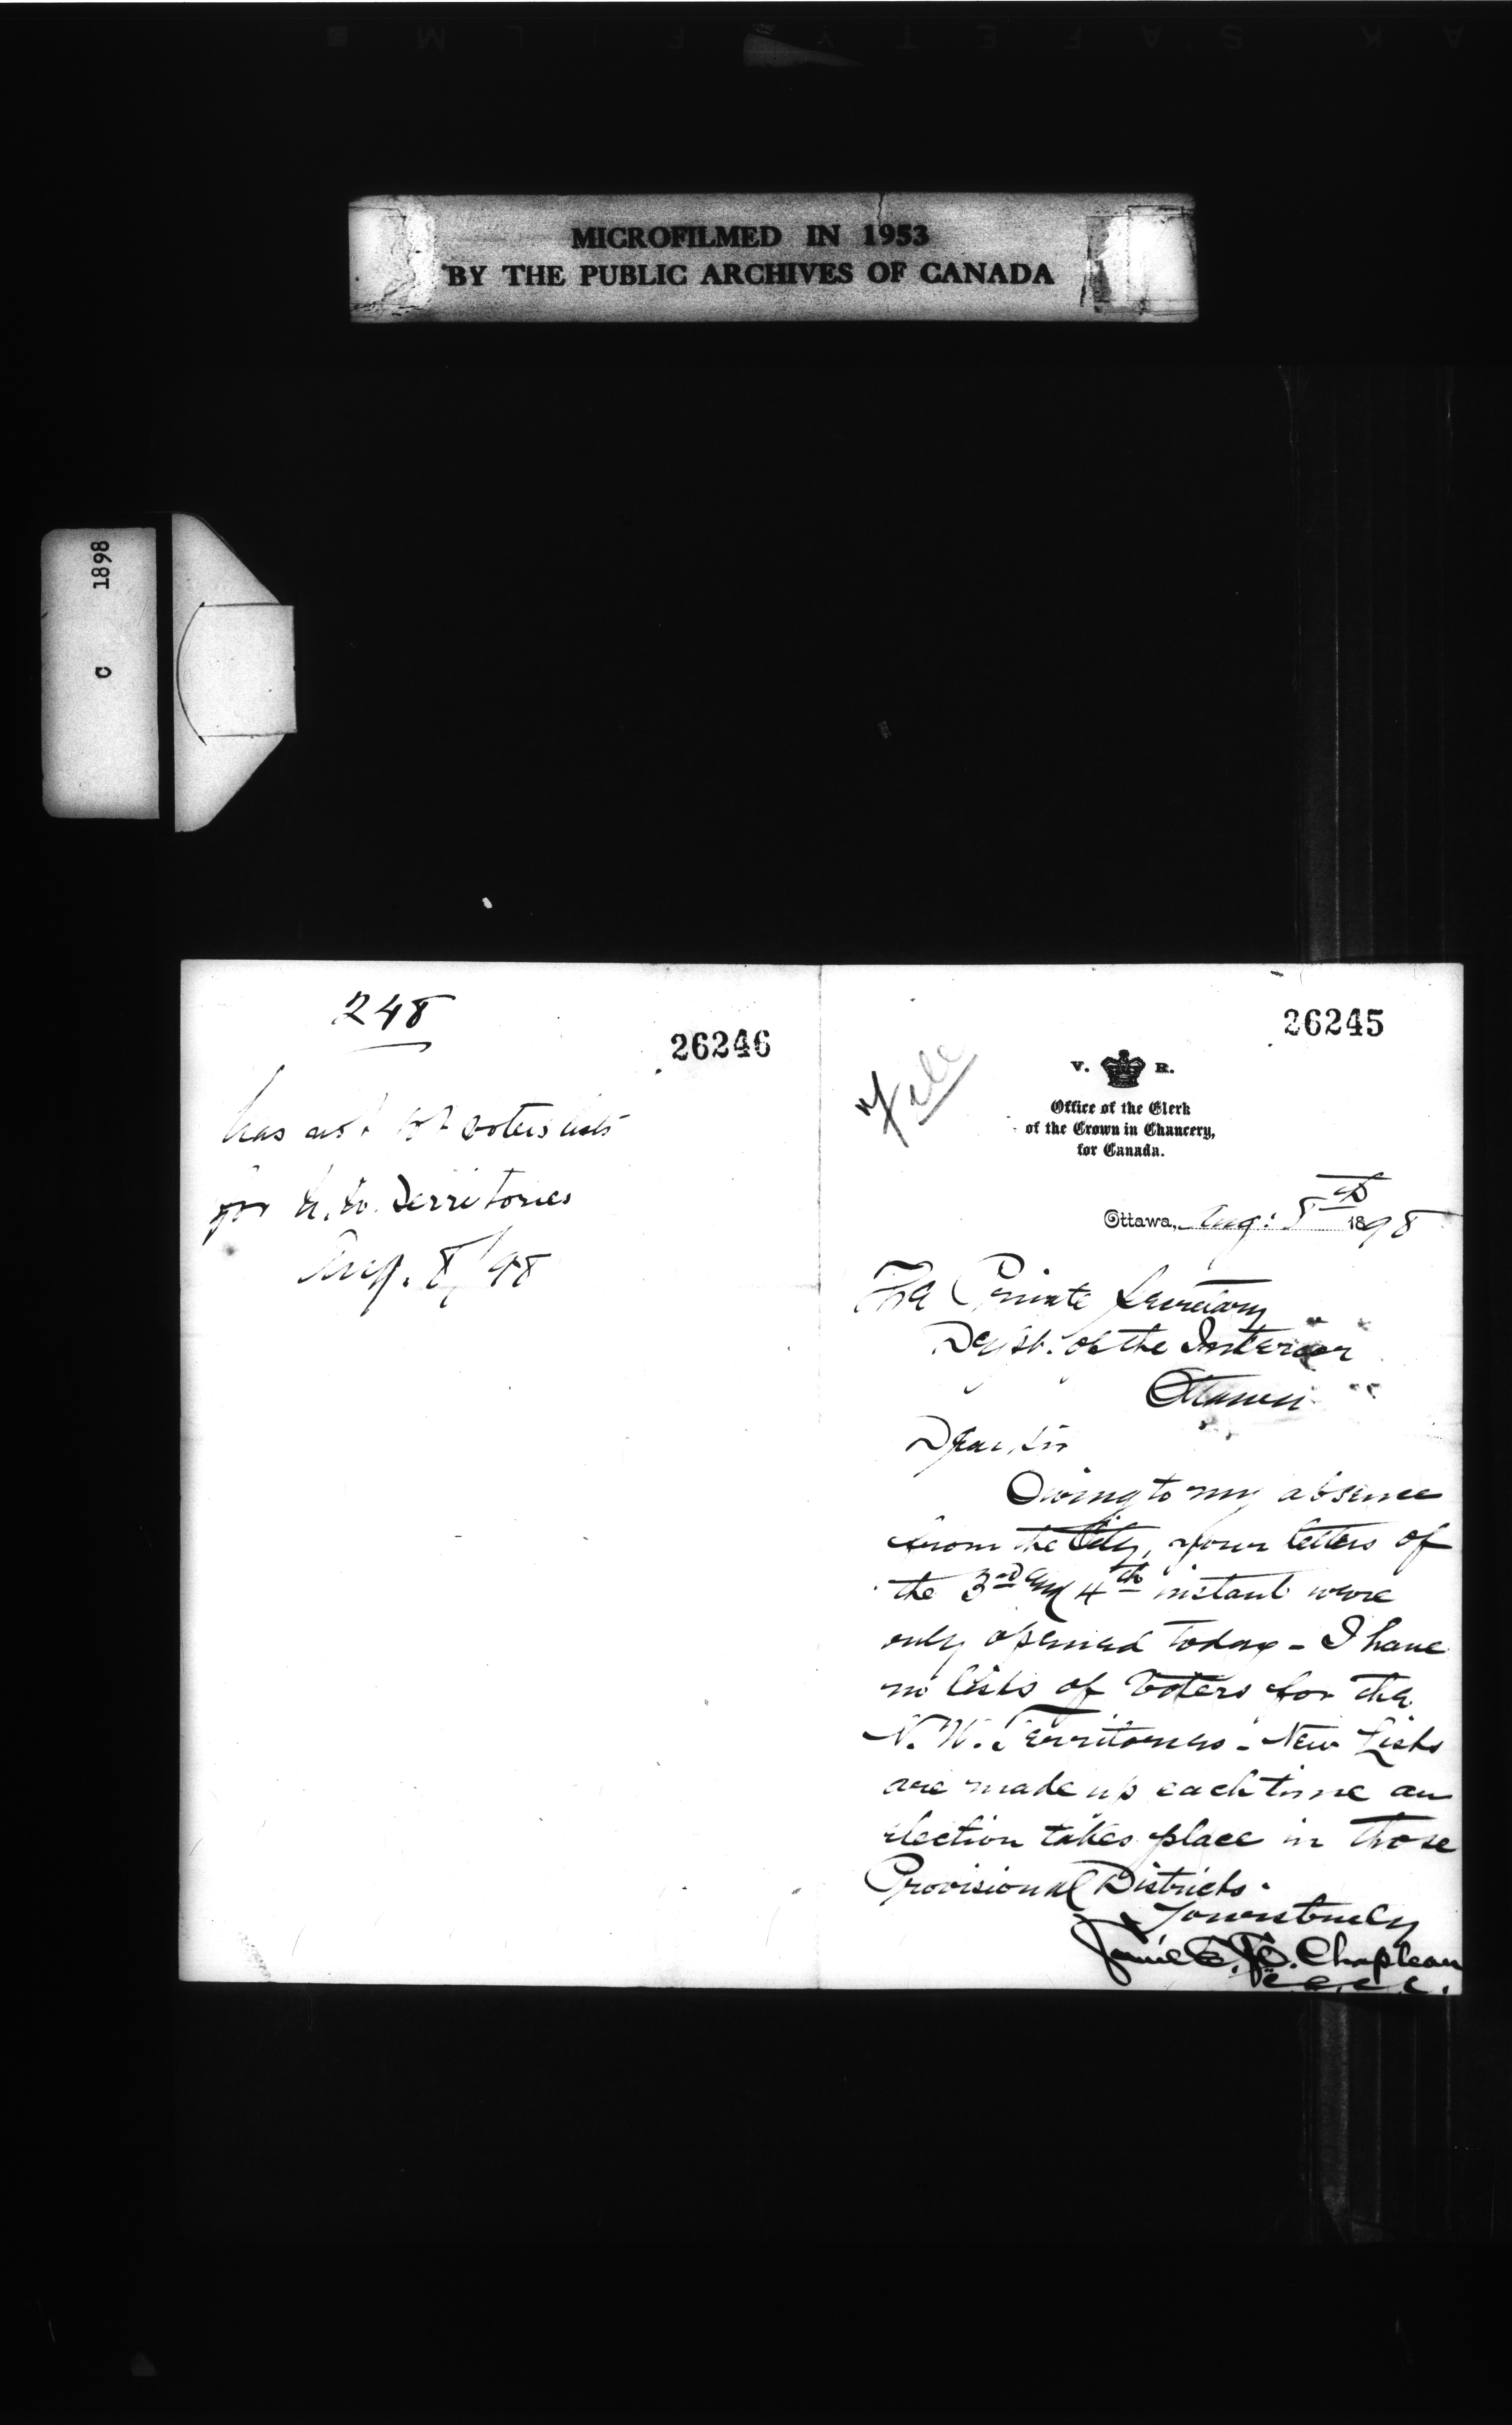 MICROFILMED IN 1953
BY THE PUBLIC ARCHIVES OF CANADA
1898
C
248
26246
has not voters lists
for N. W. Territories
Aug. 8/98
26245
File
V. R.
Office of the Clerk
of the Crown in Chancery,
for Canada.
Ottawa, Aug: 8th 1898
The Private Secretary
Dept. of the Interior
Ottawa
Dear Sir
Owing to my absence
from the City, your letters of
the 3rd and 4th instant were
only opened today - I have
no lists of Voters for the
N. W. Territories - New Lists
are made up each time an
election takes place in those
Provisional Districts.
Yours truly
Chapleau
C.C.C.